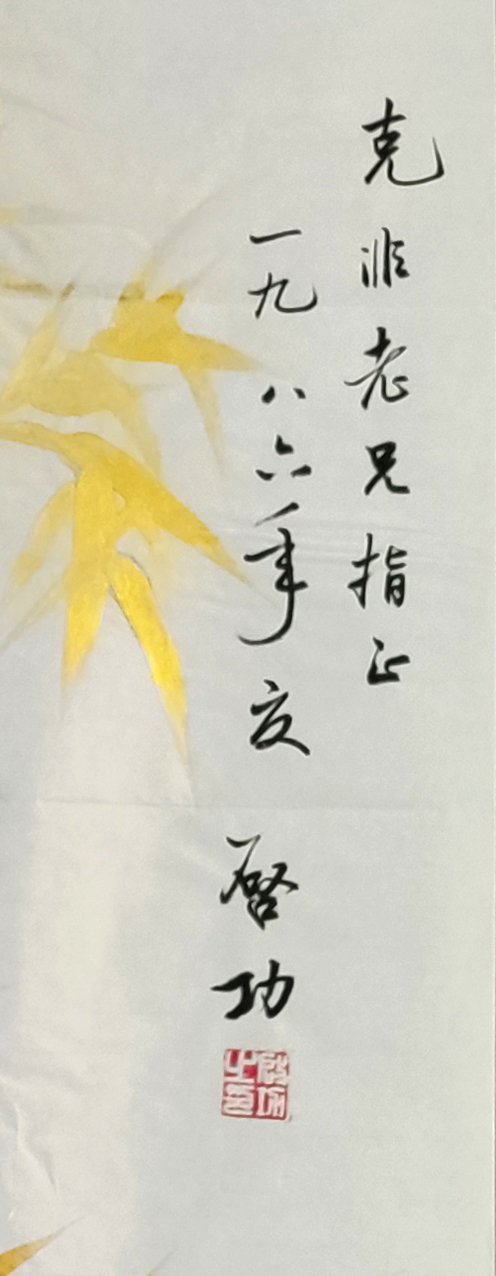 克非老兄指正
一九八六年夏
启功
启功之印